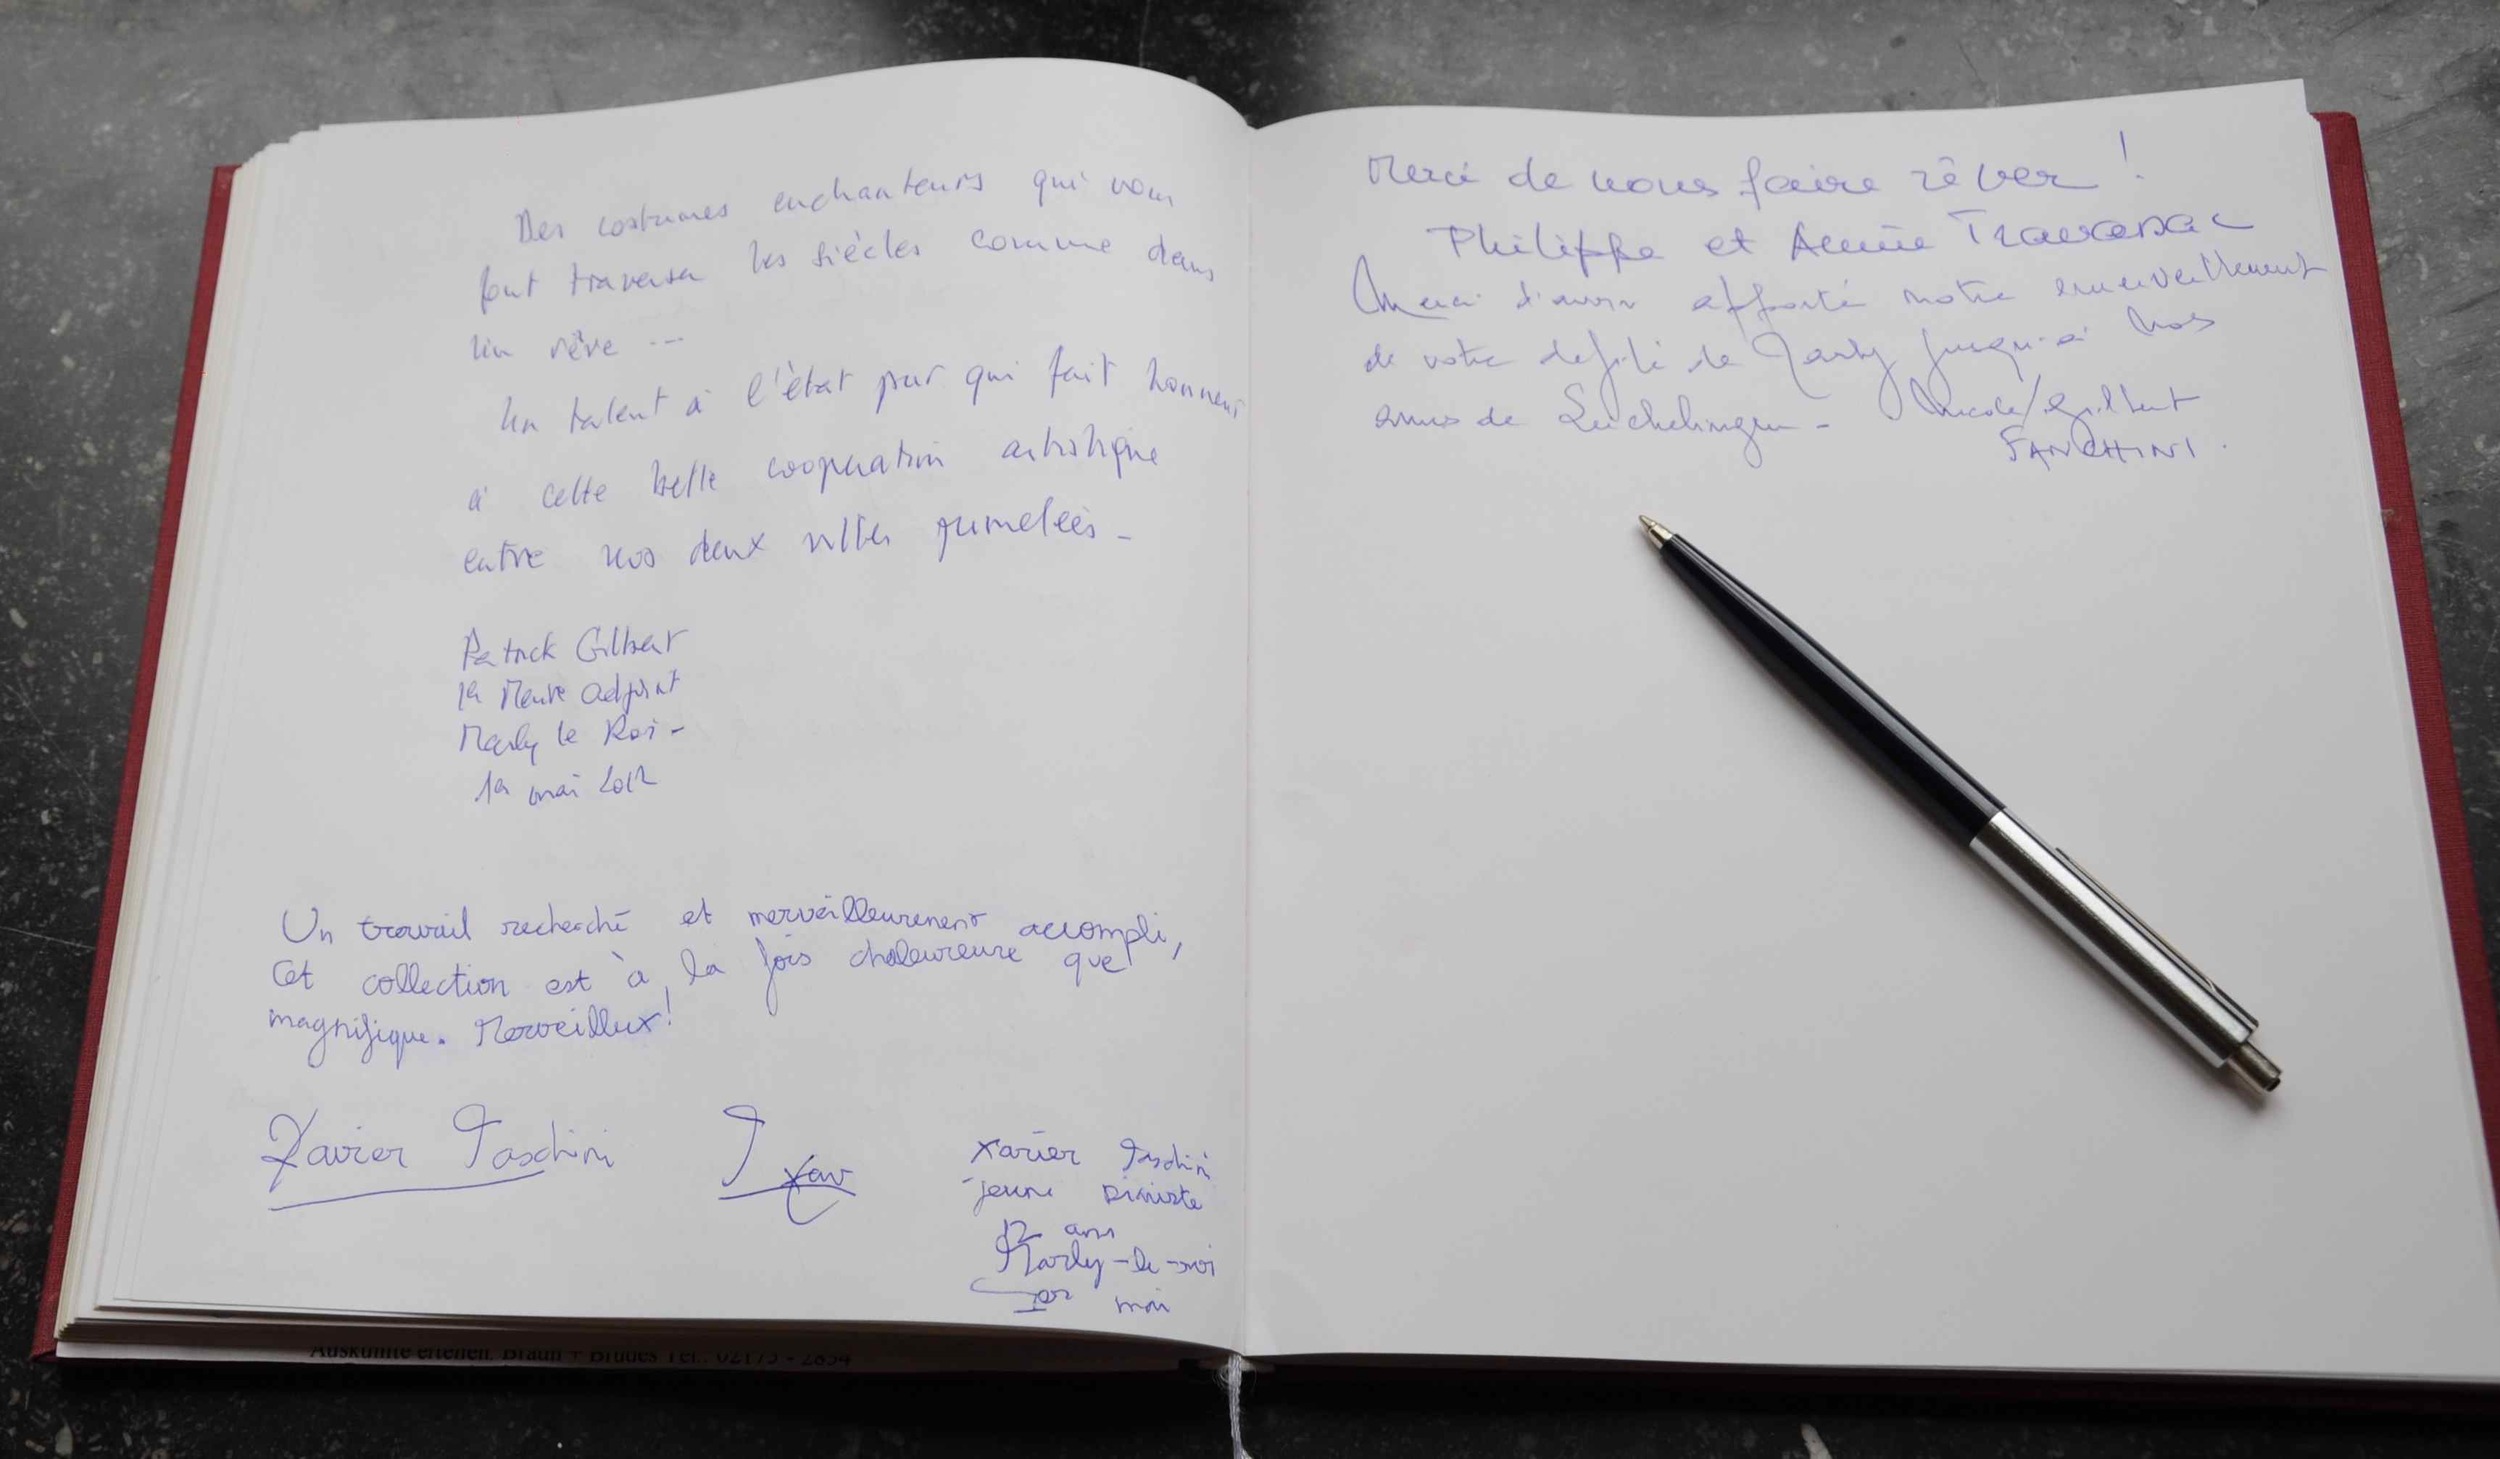 Des costumes enchanteurs qui vous
font traverser les siècles comme dans
un rêve ...
Un talent à l'état pur qui fait honneur
à cette belle coopération artistique
entre nos deux villes jumelées -
Patrick Gilbert
1er Maire adjoint
Marly le Roi -
1er mai 2012
Un travail recherché et merveilleusement accompli,
Cet collection est à la fois chaleureuse que
magnifique. Merveillux!
Xavier Taschini
T Xav
Xavier Taschini
jeune pianiste
12 ans
Marly-le-roi
1er mai
Merci de nous faire rêver !
Philippe et Annie
Merci d'avoir apporté notre emerveillement
de votre défilé de Marly jusqu'à nos
amis de Leichelingen - Nicole/Gilbert
FANCHINI.
Auskünfte erteilen: Braun + Brudes Tel.: 02175 - 2854